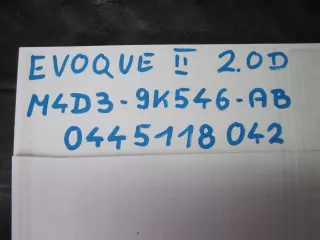 EVOQUE II 2.0D
M4D3-9K546-AB
0445118 042